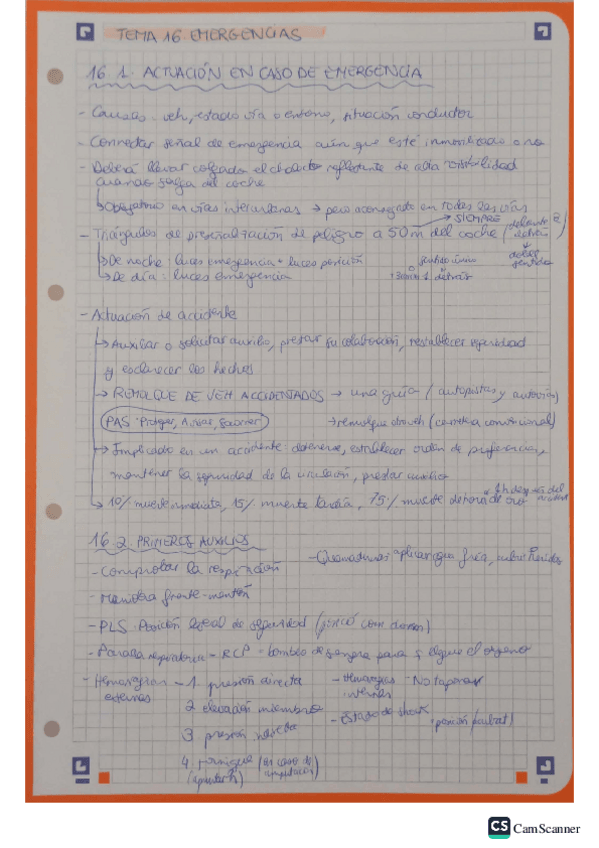 TEMA 16. EMERGENCIAS
16.1. ACTUACIÓN EN CASO DE EMERGENCIA
- Causas: veh, estado vía o entorno, situación conductor
- Connectar señal de emergencia aún que esté inmovilizado o no
- Deberá llevar colgado el chaleco reflectante de alta visibilidad
cuando salga del coche
→ Obligatorio en vías interurbanas → pero aconsejado en todas las vías
→ SIEMPRE
- Triángulos de preseñalización de peligro a 50 m del coche (delante y detrás)
doble sentido
→ De noche: luces emergencia + luces posición
→ De día: luces emergencia
sentido único
1 detrás
- Actuación de accidente
→ Auxiliar o solicitar auxilio, prestar su colaboración, restablecer seguridad
y esclarecer los hechos
→ REMOLQUE DE VEH. ACCIDENTADOS → una grúa (autopistas y autovías)
PAS: Proteger, Avisar, Socorrer
→ remolque otro veh (carretera convencional)
→ Implicado en un accidente: detenerse, establecer orden de preferencias,
mantener la seguridad de la circulación, prestar auxilio
→ 10% muerte inmediata, 15% muerte tardía, 75% muerte
16.2. PRIMEROS AUXILIOS
- Comprobar la respiración
- Quemaduras: aplicar agua fría, cubrir heridas
- Maniobra frente-mentón
- PLS: Posición lateral de seguridad
- Parada respiratoria - RCP - bombeo de sangre para q llegue el oxígeno
- Hemorragias externas
- 1. presión directa
2. elevación miembro
3. presión indirecta
4. torniquete (en caso de amputación)
(apuntar h)
- Hemorragias internas - No taponar
- Estado de shock
CS CamScanner